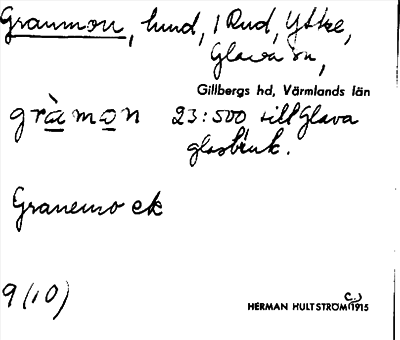 Granmon, hund, i Rud, Yttre,
Glava sn,
Gillbergs hd, Värmlands län
gràmon 23:500 till Glava
glasbruk.
Granemo ek
9 (10)
HERMAN HULTSTRÖM C. 1915